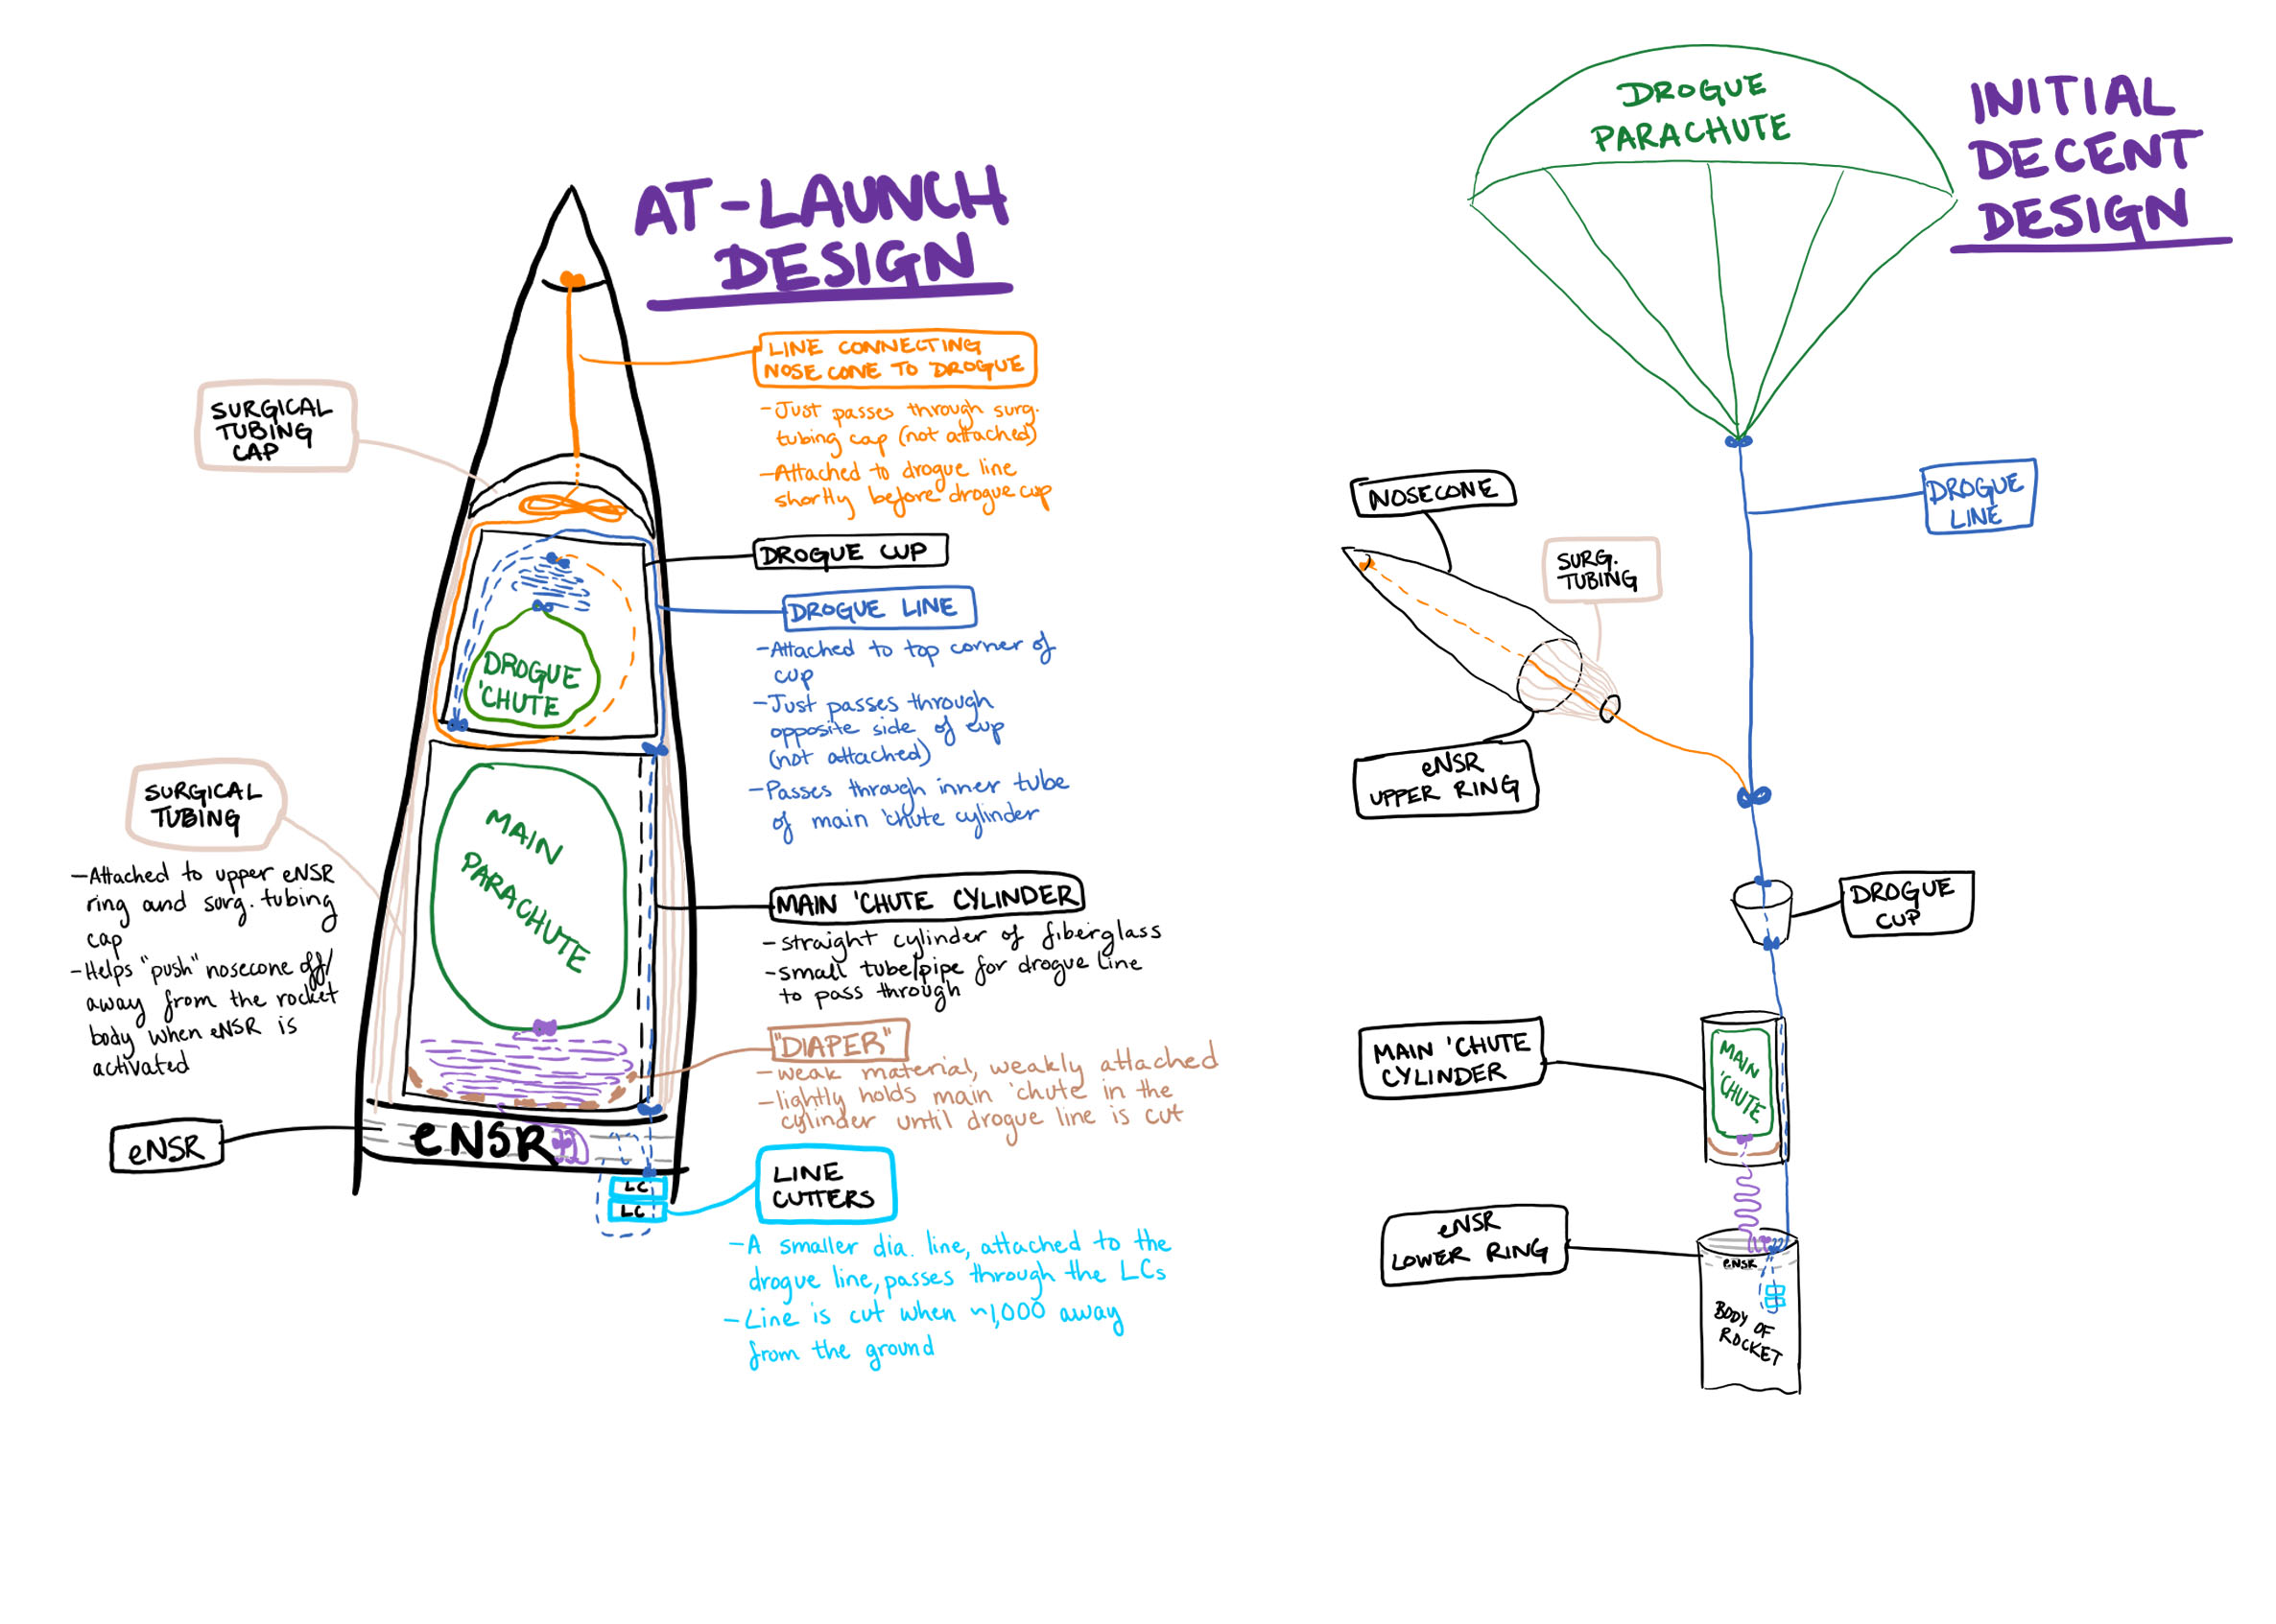 AT-LAUNCH
DESIGN
LINE CONNECTING
NOSE CONE TO DROGUE
-Just passes through surg.
tubing cap (not attached)
-Attached to drogue line
shortly before drogue cup
SURGICAL
TUBING
CAP
DROGUE CUP
DROGUE LINE
-Attached to top corner of
cup
-Just passes through
opposite side of cup
(not attached)
-Passes through inner tube
of main 'chute cylinder
DROGUE
'CHUTE
SURGICAL
TUBING
-Attached to upper eNSR
ring and surg. tubing
cap
-Helps "push" nosecone off/
away from the rocket
body when eNSR is
activated
MAIN
PARACHUTE
MAIN 'CHUTE CYLINDER
-straight cylinder of fiberglass
-small tube/pipe for drogue line
to pass through
"DIAPER"
-weak material, weakly attached
-lightly holds main 'chute in the
cylinder until drogue line is cut
eNSR
eNSR
LC
LC
LINE
CUTTERS
-A smaller dia. line, attached to the
drogue line, passes through the LCs
-Line is cut when ~1,000 away
from the ground
INITIAL
DECENT
DESIGN
DROGUE
PARACHUTE
DROGUE
LINE
NOSECONE
SURG.
TUBING
eNSR
UPPER RING
DROGUE
CUP
MAIN 'CHUTE
CYLINDER
MAIN
'CHUTE
eNSR
LOWER RING
eNSR
BODY OF
ROCKET